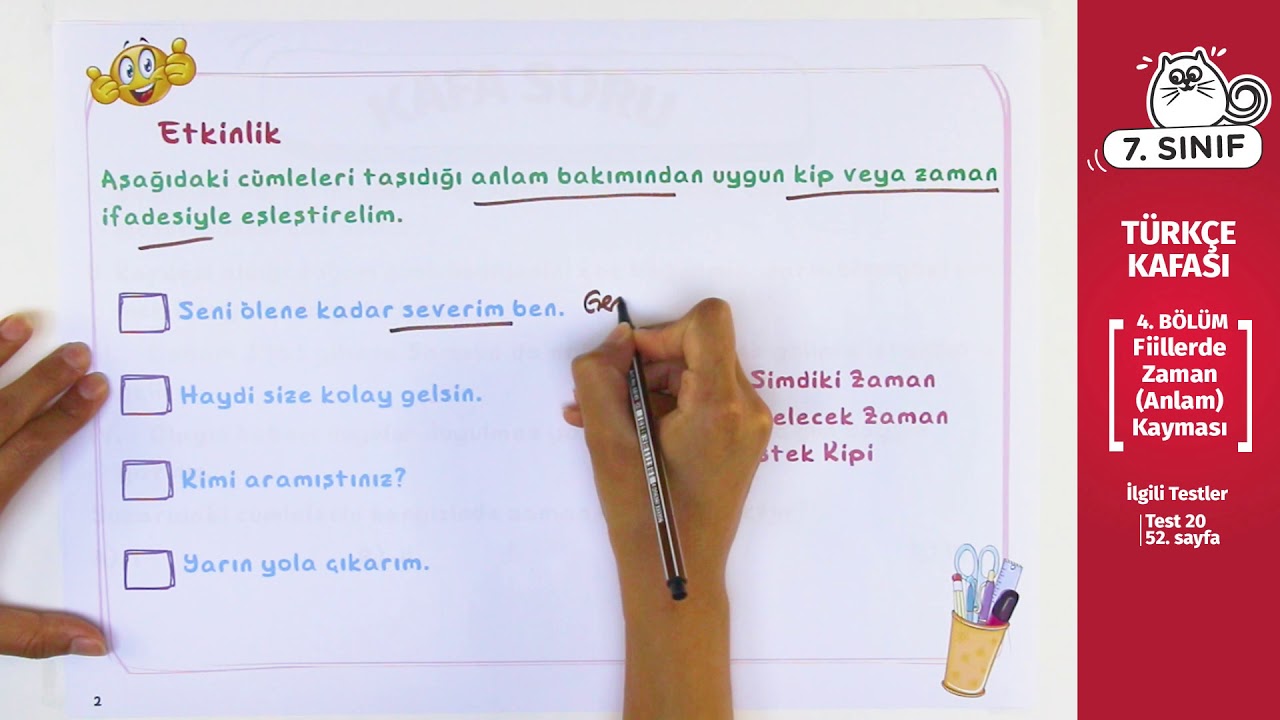 Etkinlik
Aşağıdaki cümleleri taşıdığı anlam bakımından uygun kip veya zaman
ifadesiyle eşleştirelim.
Seni ölene kadar severim ben. Gen
Haydi size kolay gelsin.
Kimi aramıştınız?
Yarın yola çıkarım.
Şimdiki Zaman
elecek Zaman
stek Kipi
2
7. SINIF
TÜRKÇE
KAFASI
4. BÖLÜM
Fiillerde
Zaman
(Anlam)
Kayması
İlgili Testler
Test 20
52. sayfa